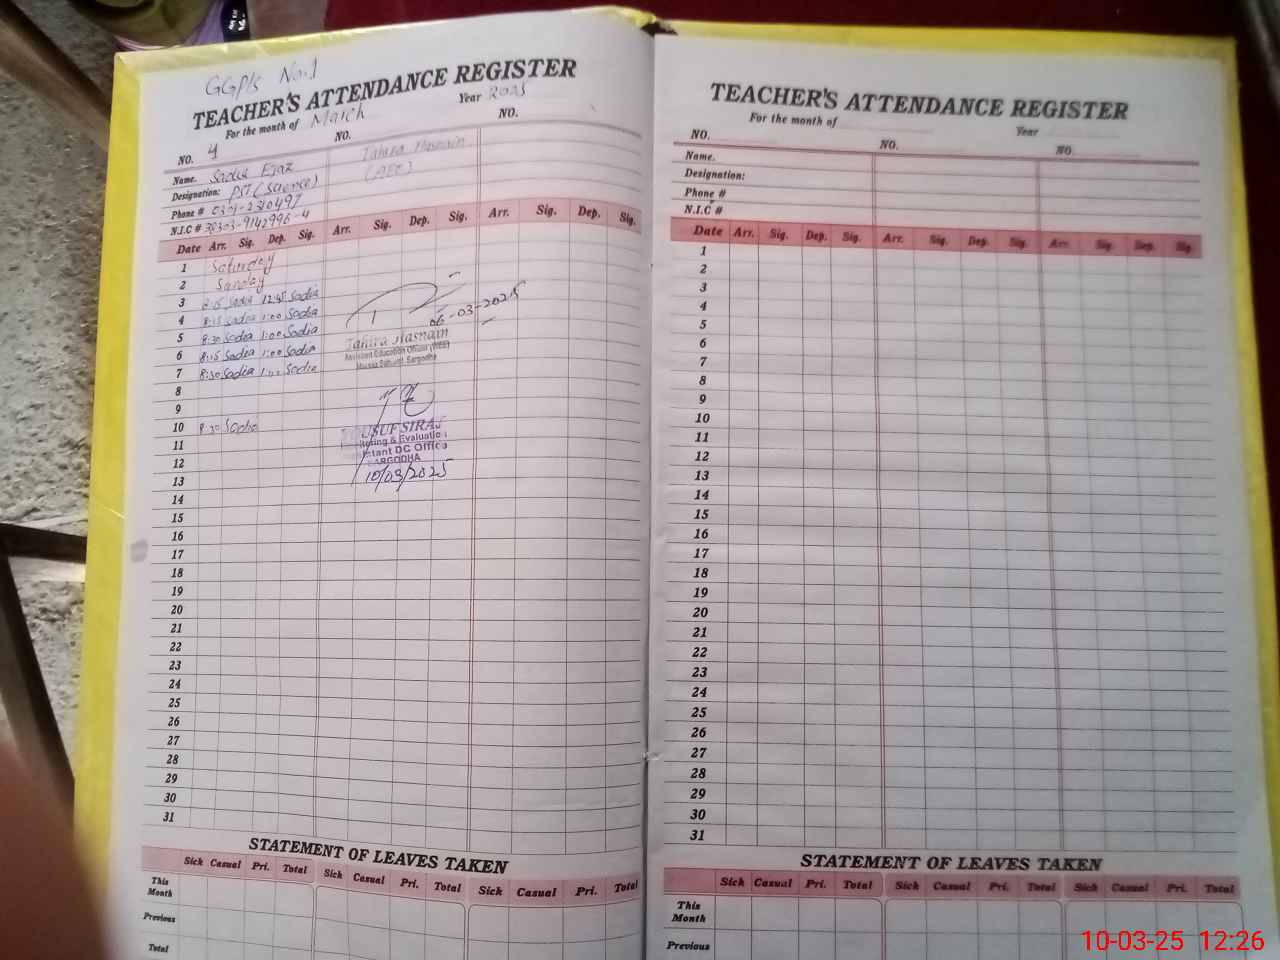 GGP/S No.1
TEACHER'S ATTENDANCE REGISTER
For the month of March Year 2025
NO. 4 NO. NO.
Name. Sadia Ejaz Tahira Hasnain
Designation: PST (Science) (AEO)
Phone # 0301-2310497
N.I.C # 38303-9142996-4
Date Arr. Sig. Dep. Sig. Arr. Sig. Dep. Sig. Arr. Sig. Dep. Sig.
1 Saturday
2 Sunday
3 8:15 Sadia 12:45 Sadia
4 8:15 Sadia 1:00 Sadia
5 8:30 Sadia 1:00 Sadia
6 8:15 Sadia 1:00 Sadia
7 8:30 Sadia 1:00 Sadia
8
9
10 8:30 Sadia
11
12
13
14
15
16
17
18
19
20
21
22
23
24
25
26
27
28
29
30
31
06-03-2025
Tahira Hasnain
Assistant Education Officer
Sargodha
YUSUF SIRAJ
& Evaluation
DC Office
SARGODHA
10/03/2025
STATEMENT OF LEAVES TAKEN
Sick Casual Pri. Total Sick Casual Pri. Total Sick Casual Pri. Total
This Month
Previous
Total
TEACHER'S ATTENDANCE REGISTER
For the month of Year
NO. NO. NO.
Name.
Designation:
Phone #
N.I.C #
Date Arr. Sig. Dep. Sig. Arr. Sig. Dep. Sig. Arr. Sig. Dep. Sig.
1
2
3
4
5
6
7
8
9
10
11
12
13
14
15
16
17
18
19
20
21
22
23
24
25
26
27
28
29
30
31
STATEMENT OF LEAVES TAKEN
Sick Casual Pri. Total Sick Casual Pri. Total Sick Casual Pri. Total
This Month
Previous
10-03-25 12:26